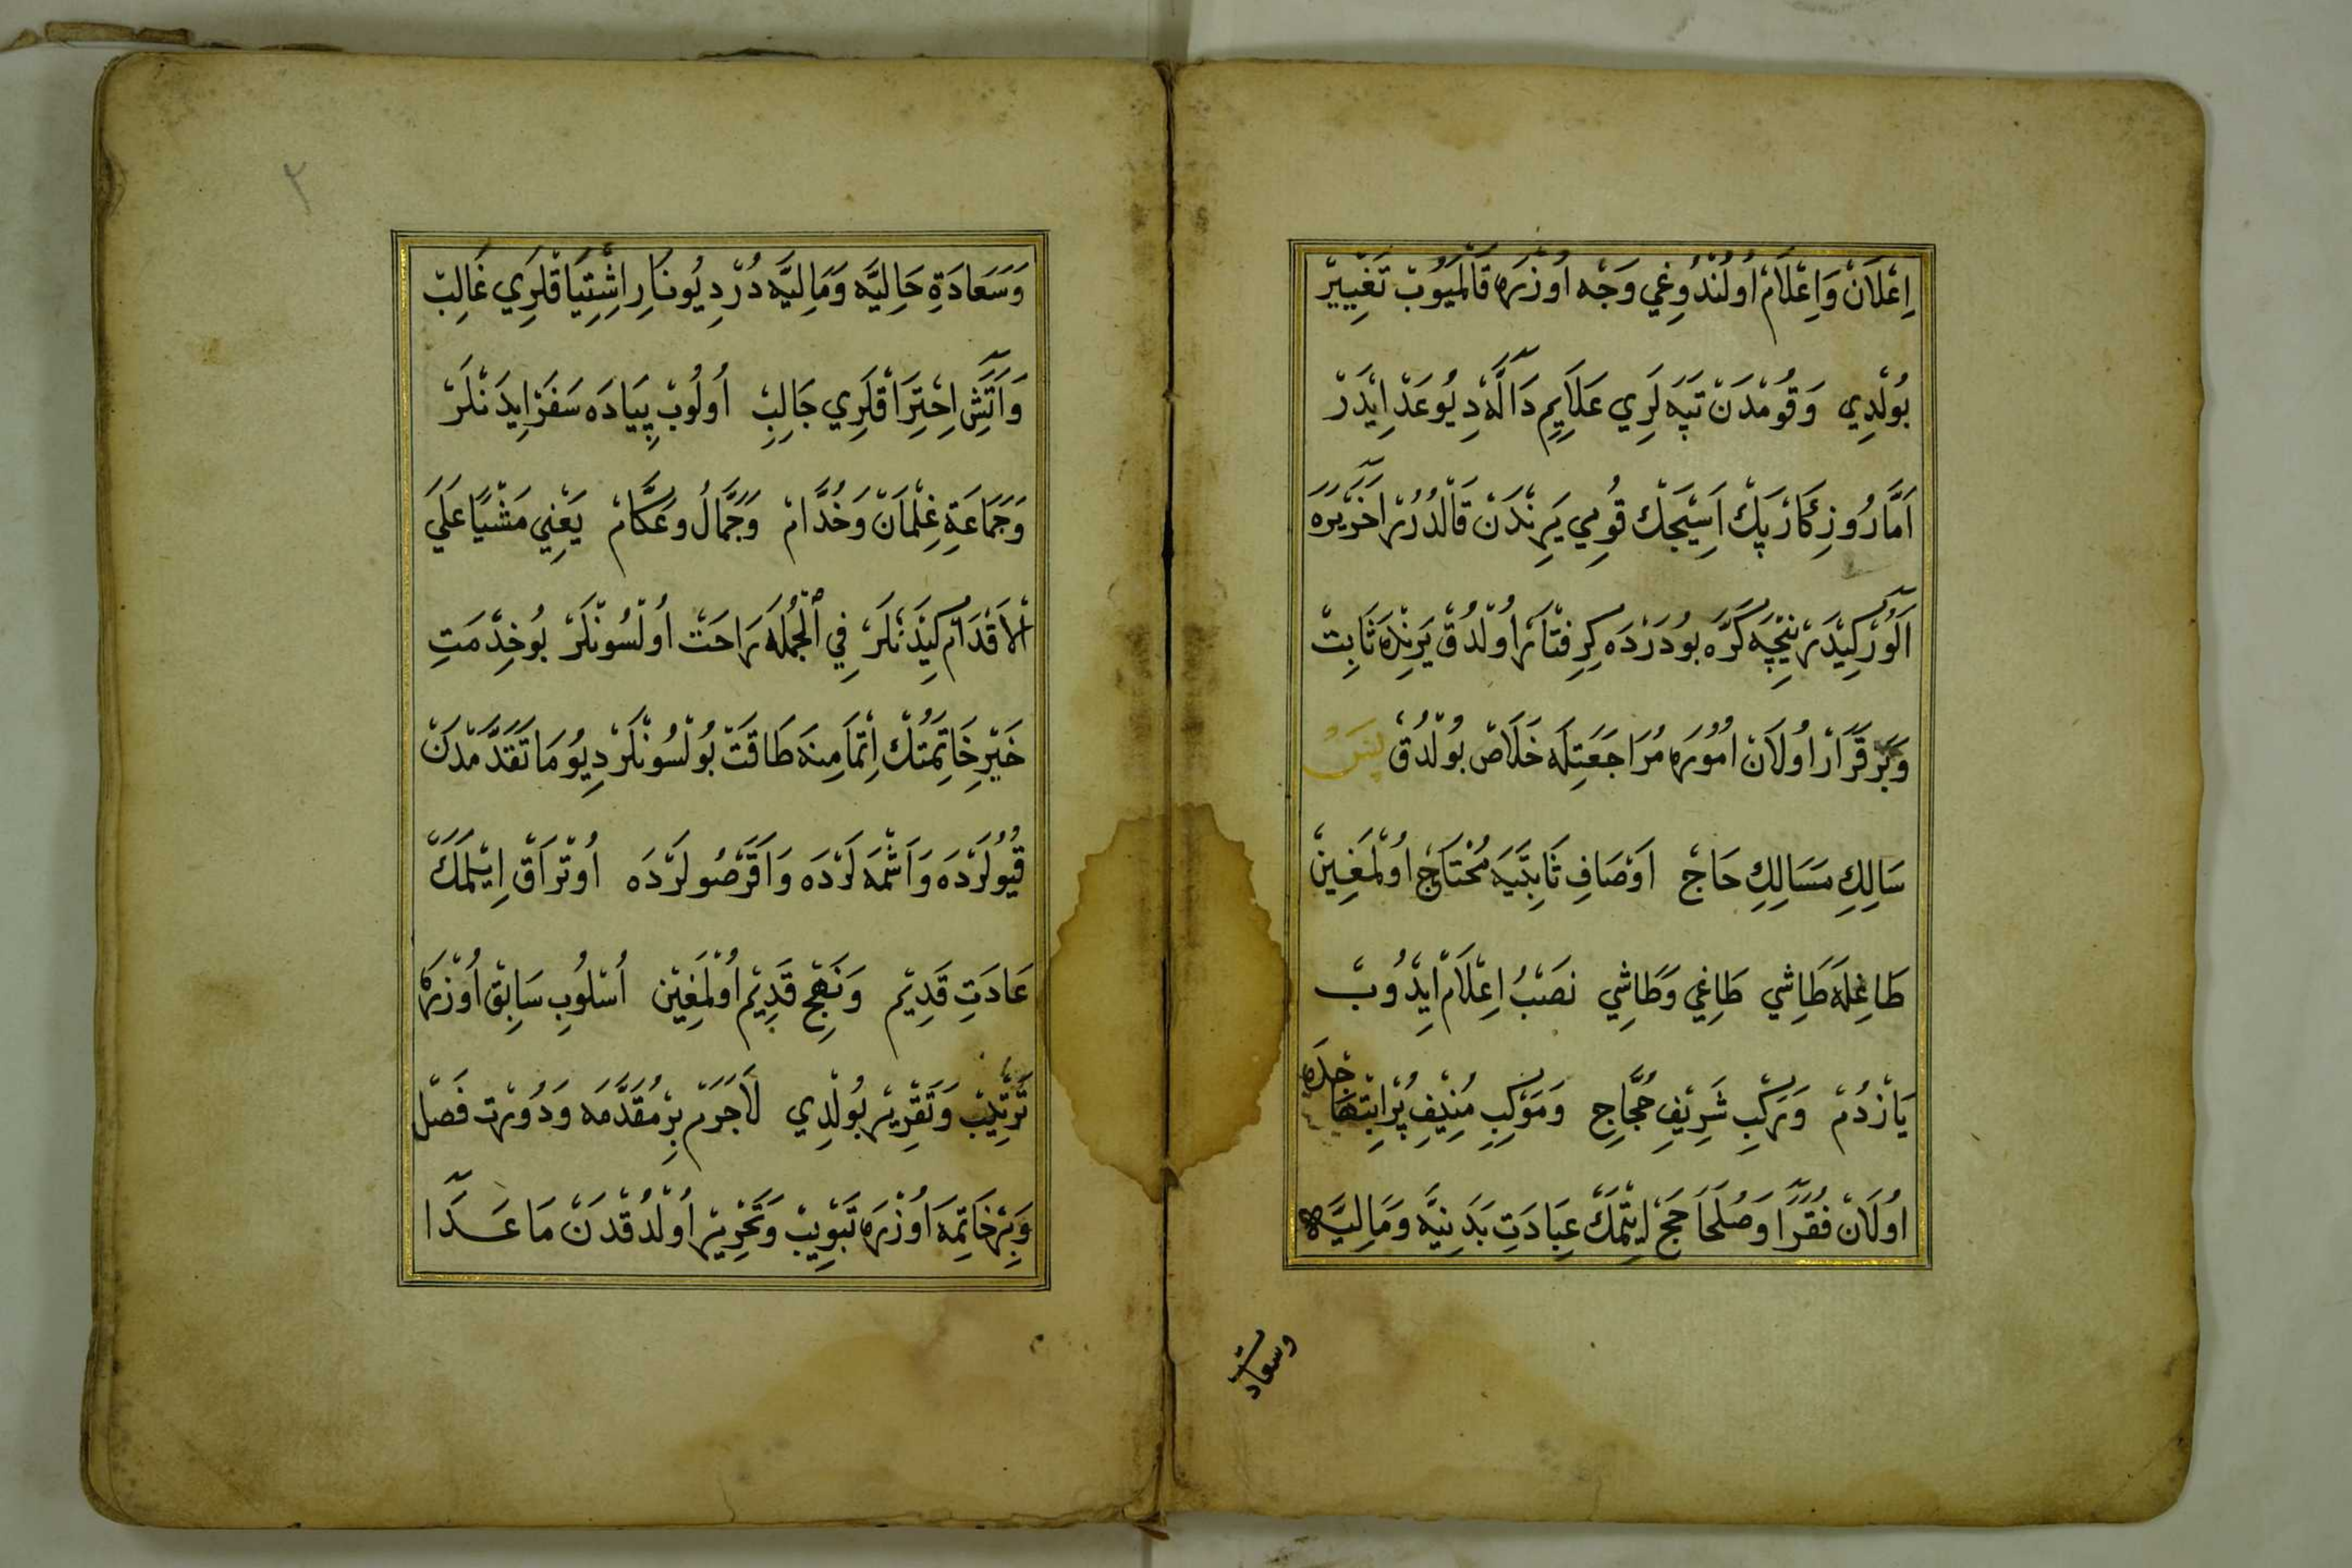 اِعْلَانْ وَاِعْلَامْ اُولُنْدُوغِي وَجْه اُوزْرَه قَالْمَيُوبْ تَغْيِيرْ
بُولْدِي وَقُومْدَنْ تَپَه لَرِي عَلَايِمِ دَالَّه دِيُوعَدْ اِيْدَرْ
اَمَّا رُوزِكَارْ پَكْ اَسِيجَكْ قُومِي يَرِنْدَنْ قَالْدُرُرْ اٰخَرْ يَرَه
اَلُورْ كِيدَرْ نِيچَه كَرَّه بُو دَرْدَه كِرِفْتَارْ اُولْدُقْ يَرِنْدَه ثَابِتْ
وَبَرْقَرَارْ اُولَانْ اُمُورَه مُرَاجَعَتِلَه خَلَاصْ بُولْدُقْ پَسْ
سَالِكِ مَسَالِكِ حَاجْ اَوْصَافِ ثَابِتَيَه مُحْتَاجْ اُولْمَغِينْ
طَاغِلَه طَاشِي طَاغِي وَطَاشِي نَصْبُ اِعْلَامْ اِيْدُوبْ
يَازْدُمْ وَرَكْبِ شَرِيفِ حُجَّاجِ وَمَوْكِبِ مُنِيفِ پُرْ اِبْتِهَاجِلَه
اُولَانْ فُقَرَا وَصُلَحَا حَجْ اِيتْمَكْ عِبَادَتِ بَدَنِيَّه وَمَالِيَّه
وسعادت
٣
وَسَعَادَةِ حَالِيَّه وَمَالِيَّه دُرْ دِيُو نَارِ اِشْتِيَاقْلَرِي غَالِبْ
وَاٰتَشِ اِحْتِرَاقْلَرِي جَالِبْ اُولُوبْ پِيَادَه سَفَرْ اِيدَنْلَرْ
وَجَمَاعَةِ غِلْمَانْ وَخُدَّامْ وَجَمَّالْ وَعَكَّامْ يَعْنِي مَشْيًا عَلَي
اْلاَقْدَامْ كِيدَنْلَرْ فِي اْلجُمْلَه رَاحَتْ اُولْسُونْلَرْ بُو خِدْمَتِ
خَيْرِ خَاتِمَتُكْ اِتْمَامِنَه طَاقَتْ بُولْسُونْلَرْ دِيُو مَا تَقَدَّمْدَنْ
قُيُولَرْدَه وَاَشْمَه لَرْدَه وَاَقَرْصُولَرْدَه اُوتْرَاقْ اِيْلَمَكْ
عَادَتِ قَدِيمْ وَنَهْجِ قَدِيمْ اُولْمَغِينْ اُسْلُوبِ سَابِقْ اُوزْرَه
تَرْتِيبْ وَتَقْرِيرْ بُولْدِي لَاجَرَمْ بِرْ مُقَدَّمَه وَدُورْتْ فَصْل
وَبِرْ خَاتِمَه اُوزْرَه تَبْوِيبْ وَتَحْرِيرْ اُولْدُقْدَنْ مَاعَدَا